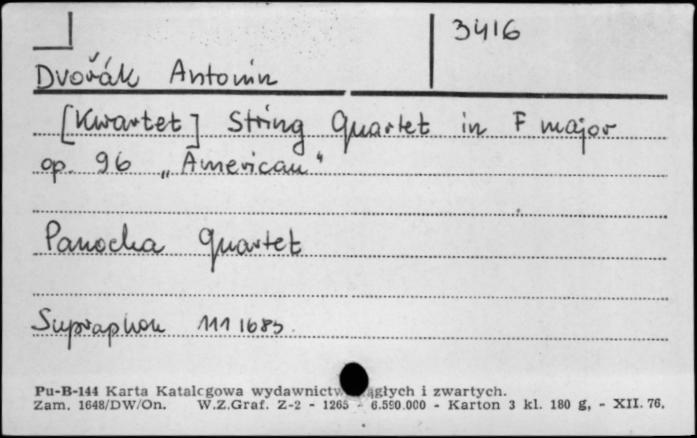 3416
Dvořák Antonin
[Kwartet] String Quartet in F major
op. 96 „American"
Panocha Quartet
Supraphon 111 1683
Pu-B-144 Karta Katalcgowa wydawnictw i zwartych.
Zam. 1648/DW/On. W.Z.Graf. Z-2 - 1265 - 6.590.000 - Karton 3 kl. 180 g, - XII. 76.